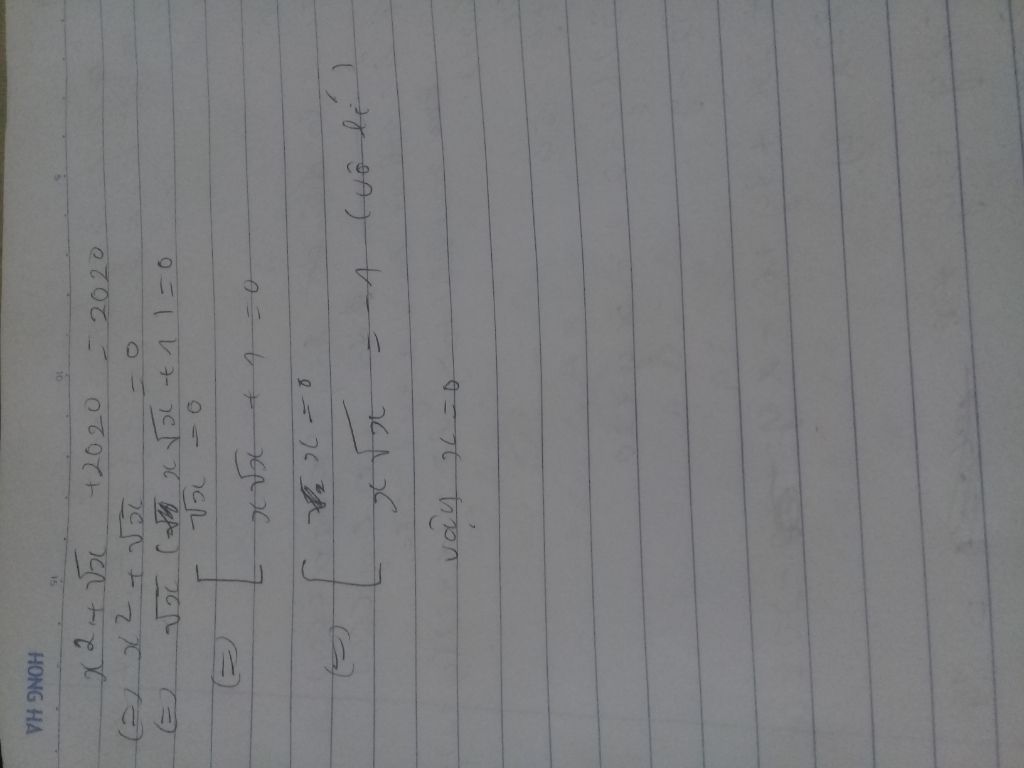 HONG HA
x² + √x + 2020 = 2020
(=) x² + √x = 0
(=) √x ( x√x + 1 ) = 0
(=) [ √x = 0
x√x + 1 = 0
(=) [ x = 0
x√x = -1 (vô lí)
vậy x = 0